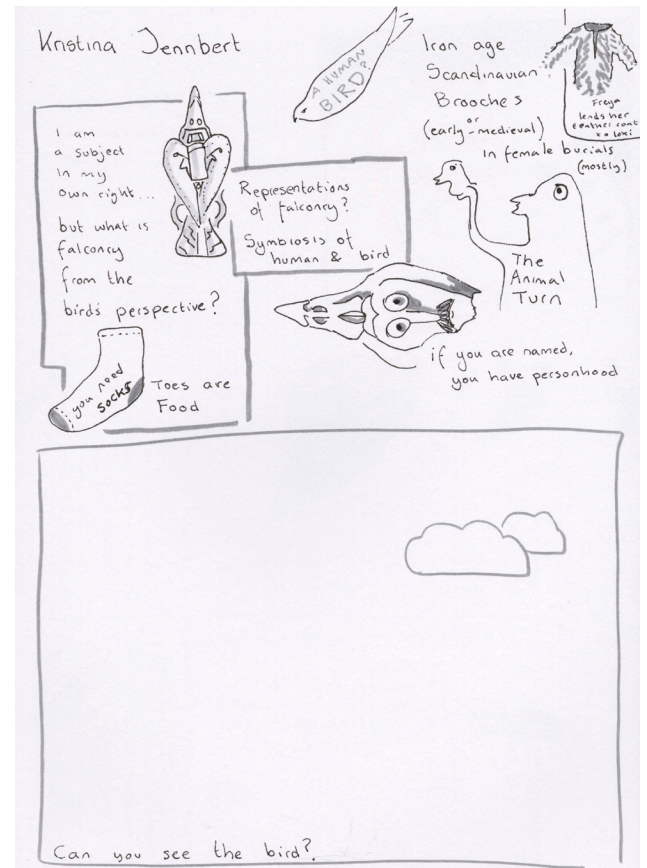 Kristina Jennbert
A HUMAN
BIRD?
Iron age
Scandinavian
Brooches
or
(early-medieval)
in female burials
(mostly)
Freya
lends her
feather coat
to Loki
I am
a subject
in my
own right...
but what is
falconry
from the
bird's perspective?
Representations
of falconry?
Symbiosis of
human & bird
The
Animal
Turn
if you are named,
you have personhood
you need
socks
Toes are
Food
Can you see the bird?